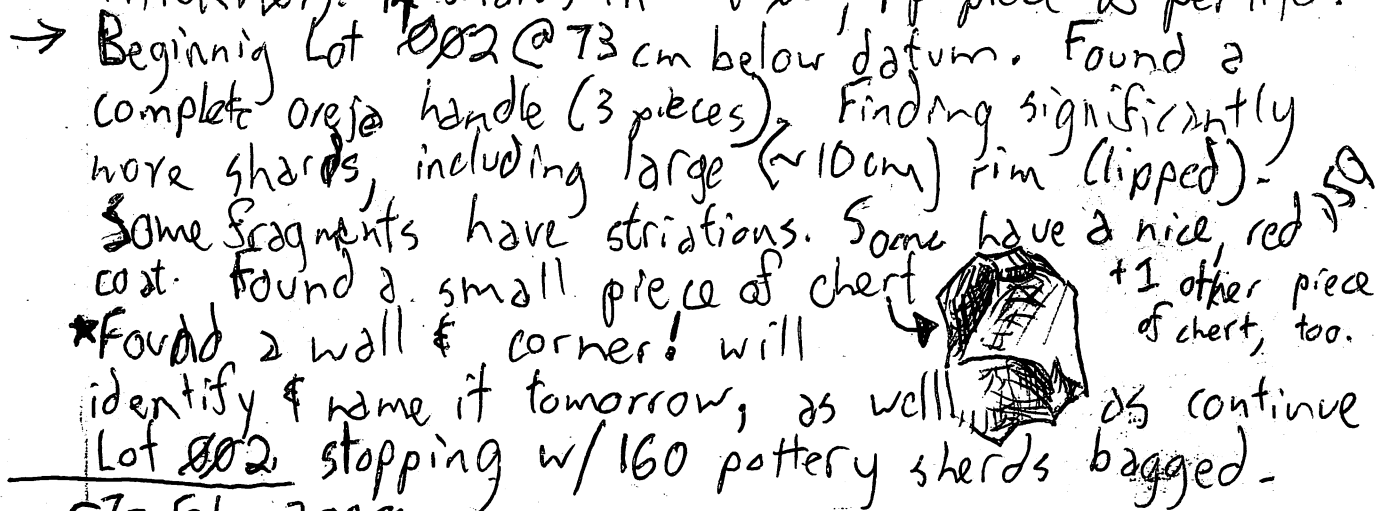 → Beginnig Lot 002 @ 73 cm below datum. Found a
complete oreja handle (3 pieces). Finding significantly
more shards, including large (~10cm) rim (lipped).
Some fragments have striations. Some have a nice, red
coat. Found a small piece of chert
+1 other piece
of chert, too.
*Found a wall & corner! will
identify & name it tomorrow, as well as continue
Lot 002 stopping w/ 160 pottery sherds bagged.